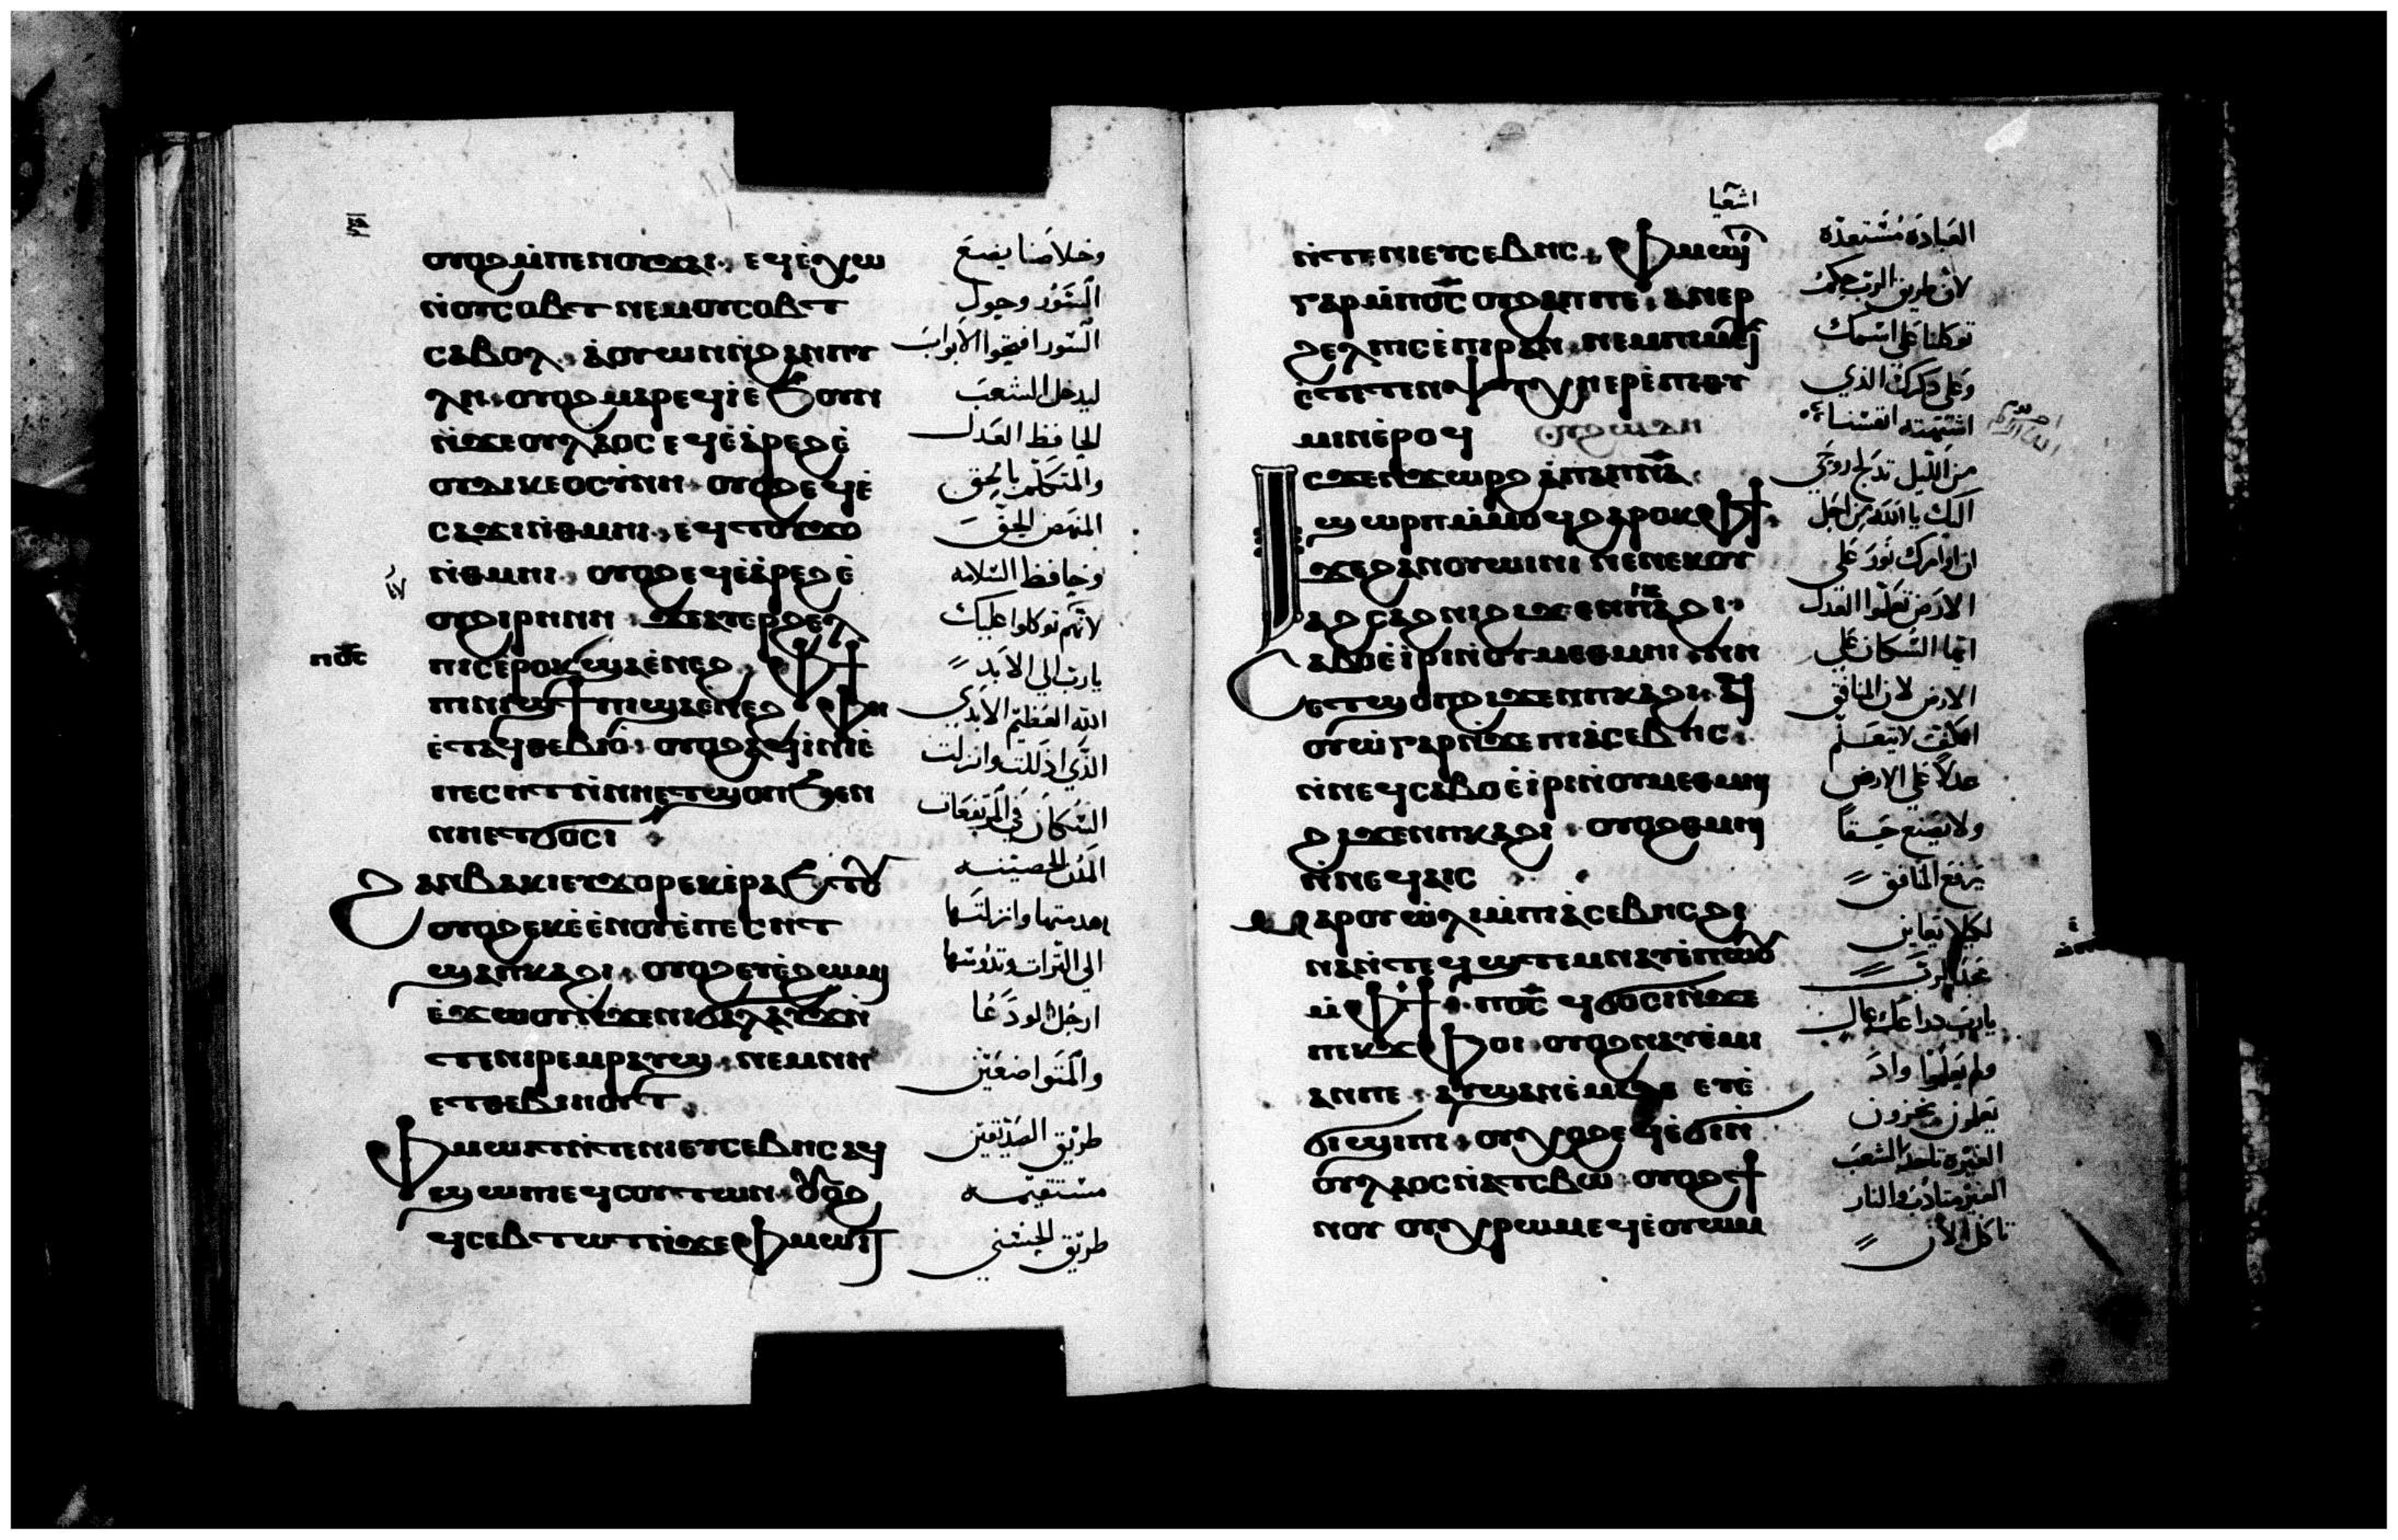 ⲟⲩⲟϩ ⲙ̀ⲡⲉⲛⲟⲩϫⲁⲓ · ⲉϥⲉ̀ⲭⲱ
ⲛ̀ⲟⲩⲥⲟⲃⲧ ⲛⲉⲙⲟⲩⲥⲟⲃⲧ
ⲥⲁⲃⲟⲗ · ⲁ̀ⲟⲩⲱⲛ ⲛ̀ϩⲁⲛⲡⲩ
ⲗⲏ · ⲟⲩⲟϩ ⲙⲁⲣⲉϥⲓ̀ ⲉ̀ϧⲟⲩⲛ
ⲛ̀ϫⲉⲟⲩⲗⲁⲟⲥ ⲉϥⲁ̀ⲣⲉϩ ⲉ̀
ⲟⲩⲇⲓⲕⲉⲟⲥⲩⲛⲏ · ⲟⲩⲟϩ ⲉϥⲉ̀
ⲥⲁϫⲓ ⲛ̀ⲑⲙⲏⲓ · ⲉϥⲧⲟⲩϫⲟ
ⲛ̀ⲑⲙⲏⲓ · ⲟⲩⲟϩ ⲉϥⲉ̀ⲁ̀ⲣⲉϩ ⲉ̀
ⲟⲩϩⲓⲣⲏⲛⲏ · ϫⲉⲁⲩⲉⲣϩⲉⲗ
ⲡⲓⲥ ⲉ̀ⲣⲟⲕ ϣⲁⲉ̀ⲛⲉϩ · ⲫϯ
ⲡⲓⲛⲓϣϯ ⲡⲓϣⲁⲉ̀ⲛⲉϩ · ⲫⲏ
ⲉ̀ⲧⲁϥⲑⲉⲃⲓⲟ̀ · ⲟⲩⲟϩ ⲁϥⲓ̀ⲛⲓ ⲉ̀
ⲡⲉⲥⲏⲧ ⲛ̀ⲛⲏⲉⲧϣⲟⲡ ϧⲉⲛ
ⲛⲏⲉⲧϭⲟⲥⲓ
ϩⲁⲛⲃⲁⲕⲓ ⲉⲩⲭⲟⲣ ⲉⲕⲉ̀ⲣⲁϧⲧⲟⲩ
ⲟⲩⲟϩ ⲉⲕⲉ̀ⲉ̀ⲛⲟⲩ ⲉ̀ⲡⲉⲥⲏⲧ
ϣⲁⲡⲕⲁϩⲓ · ⲟⲩⲟϩ ⲉⲩⲉ̀ϩⲱⲙⲓ
ⲉ̀ϫⲱⲟⲩ ⲛ̀ϫⲉⲛⲓϭⲁⲗⲁⲩϫ ⲛ̀
ⲧⲉⲛⲓⲣⲉⲙⲣⲁⲩϣ · ⲛⲉⲙⲛⲏ
ⲉⲧⲑⲉⲃⲓⲏⲟⲩⲧ
ⲫⲙⲱⲓⲧ ⲛ̀ⲧⲉⲛⲓⲉⲩⲥⲉⲃⲏⲥ ⲁϥ
ϣⲱⲡⲓ ⲉϥⲥⲟⲩⲧⲱⲛ · ⲟⲩⲟϩ
ϥⲥⲉⲃⲧⲱⲧ ⲛ̀ϫⲉⲫⲙⲱⲓⲧ
ⲡⲟ̅ⲥ̅
وخلاصنا يضع
السَور وحول
السور افتحوا الابواب
ليدخل الشعب
الحافظ العدل
والمتكلم بالحق
المنهض الحق
وحافظ السلامه
لانهم توكلوا عليك
يارب الي الابد
الله العظيم الابدي
الذي اذللت وانزلت
السكان في المرتفعات
المدن الحصينه
اهدمتها وانزلتها
الي التراب وتدوسها
ارجل الودعا
والمتواضعين
طريق الصديقين
مستقيمه
طريق الحسني
اشعيا
ⲛ̀ⲧⲉⲛⲓⲉⲩⲥⲉⲃⲏⲥ · ⲫⲙⲱⲓⲧ
ⲅⲁⲣ ⲙ̀ⲡⲟ̅ⲥ̅ ⲟⲩϩⲁⲡⲡⲉ · ⲁⲛⲉⲣ
ϩⲉⲗⲡⲓⲥ ⲉ̀ⲡⲓⲣⲁⲛ · ⲛⲉⲙⲡⲓⲙⲉⲩⲓ
ⲉ̀ⲧⲉⲧⲉⲛⲯⲩⲭⲏ ⲉⲣⲉ̀ⲡⲓⲑⲩ
ⲙⲓⲛ ⲉ̀ⲣⲟϥ
ⲥϫⲉⲛ ⲡⲓⲉ̀ϫⲱⲣϩ ⲁ̀ⲡⲁⲡⲛ̅ⲁ̅
ϣⲱⲣⲡ ⲙ̀ⲙⲟϥ ϩⲁⲣⲟⲕ ⲫϯ
ϫⲉϩⲁⲛⲟⲩⲱⲓⲛⲓ ⲛⲉ ⲛⲉⲕⲟⲩ
ⲁϩⲥⲁϩⲛⲓ ϩⲓϫⲉⲛ ⲡⲕⲁϩⲓ ·
ⲥⲁⲃⲟ ⲉ̀ⲓ̀ⲣⲓ ⲛ̀ⲟⲩⲙⲉⲑⲙⲏⲓ ⲛⲏ
ⲉⲧϣⲟⲡ ϩⲓϫⲉⲛ ⲡⲕⲁϩⲓ · ⲁϥ
ⲟⲩⲱ̀ ⲅⲁⲣ ⲛ̀ϫⲉⲡⲓⲁ̀ⲥⲉⲃⲏⲥ ·
ⲛ̀ⲛⲉϥⲥⲁⲃⲟ ⲉ̀ⲓ̀ⲣⲓ ⲛ̀ⲟⲩⲙⲉⲑⲙⲏⲓ
ϩⲓϫⲉⲛ ⲡⲕⲁϩⲓ · ⲟⲩⲟϩ ⲑⲙⲏⲓ
ⲛ̀ⲛⲉϥⲁⲓⲥ
ⲙⲁⲣⲟⲩⲱ̀ⲗⲓ ⲙ̀ⲡⲓⲁ̀ⲥⲉⲃⲏⲥ ϩⲓ
ⲛⲁ ⲛ̀ⲧⲉϥϣⲧⲉⲙⲛⲁⲩ ⲉ̀ⲡⲱⲟⲩ
ⲙ̀ⲫϯ · ⲡⲟ̅ⲥ̅ ϥϭⲟⲥⲓ ⲛ̀ϫⲉ
ⲡⲉⲕϫⲫⲟⲓ · ⲟⲩⲟϩ ⲛⲁⲩⲉ̀ⲙⲓ
ⲁⲛⲡⲉ · ⲁⲩϣⲁⲛⲉ̀ⲙⲓ ⲇⲉ ⲉⲩⲉ̀
ϭⲓϣⲓⲡⲓ · ⲟⲩⲭⲟϩ ⲉϥⲉ̀ϭⲓ ⲛ̀
ⲟⲩⲗⲁⲟⲥ ⲛ̀ⲁⲧⲥⲃⲱ · ⲟⲩⲟϩ ϯ
ⲛⲟⲩ ⲟⲩⲭⲣⲱⲙ ⲉϥⲉ̀ⲟⲩⲱⲙ
العباده مستعده
لان طريق الرب حكم
توكلنا علي اسمك
وعلي ذكرك الذي
اشتهته انفسنا
من الليل تدلج روحي
اليك يا الله من اجل
ان اوامرك نور علي
الارض تعلموا العدل
ايها السكان علي
الارض لان المنافق
لا يتعلم
عدلا علي الارض
ولا يصنع حقا
يرفع المنافق
لكيلا يعاين
مجد الرب
يارب ذراعك عال
ولم يعلموا واذ
يعلمون يخزون
الغيره تاخذ الشعب
الغير متادب والنار
تاكل الان